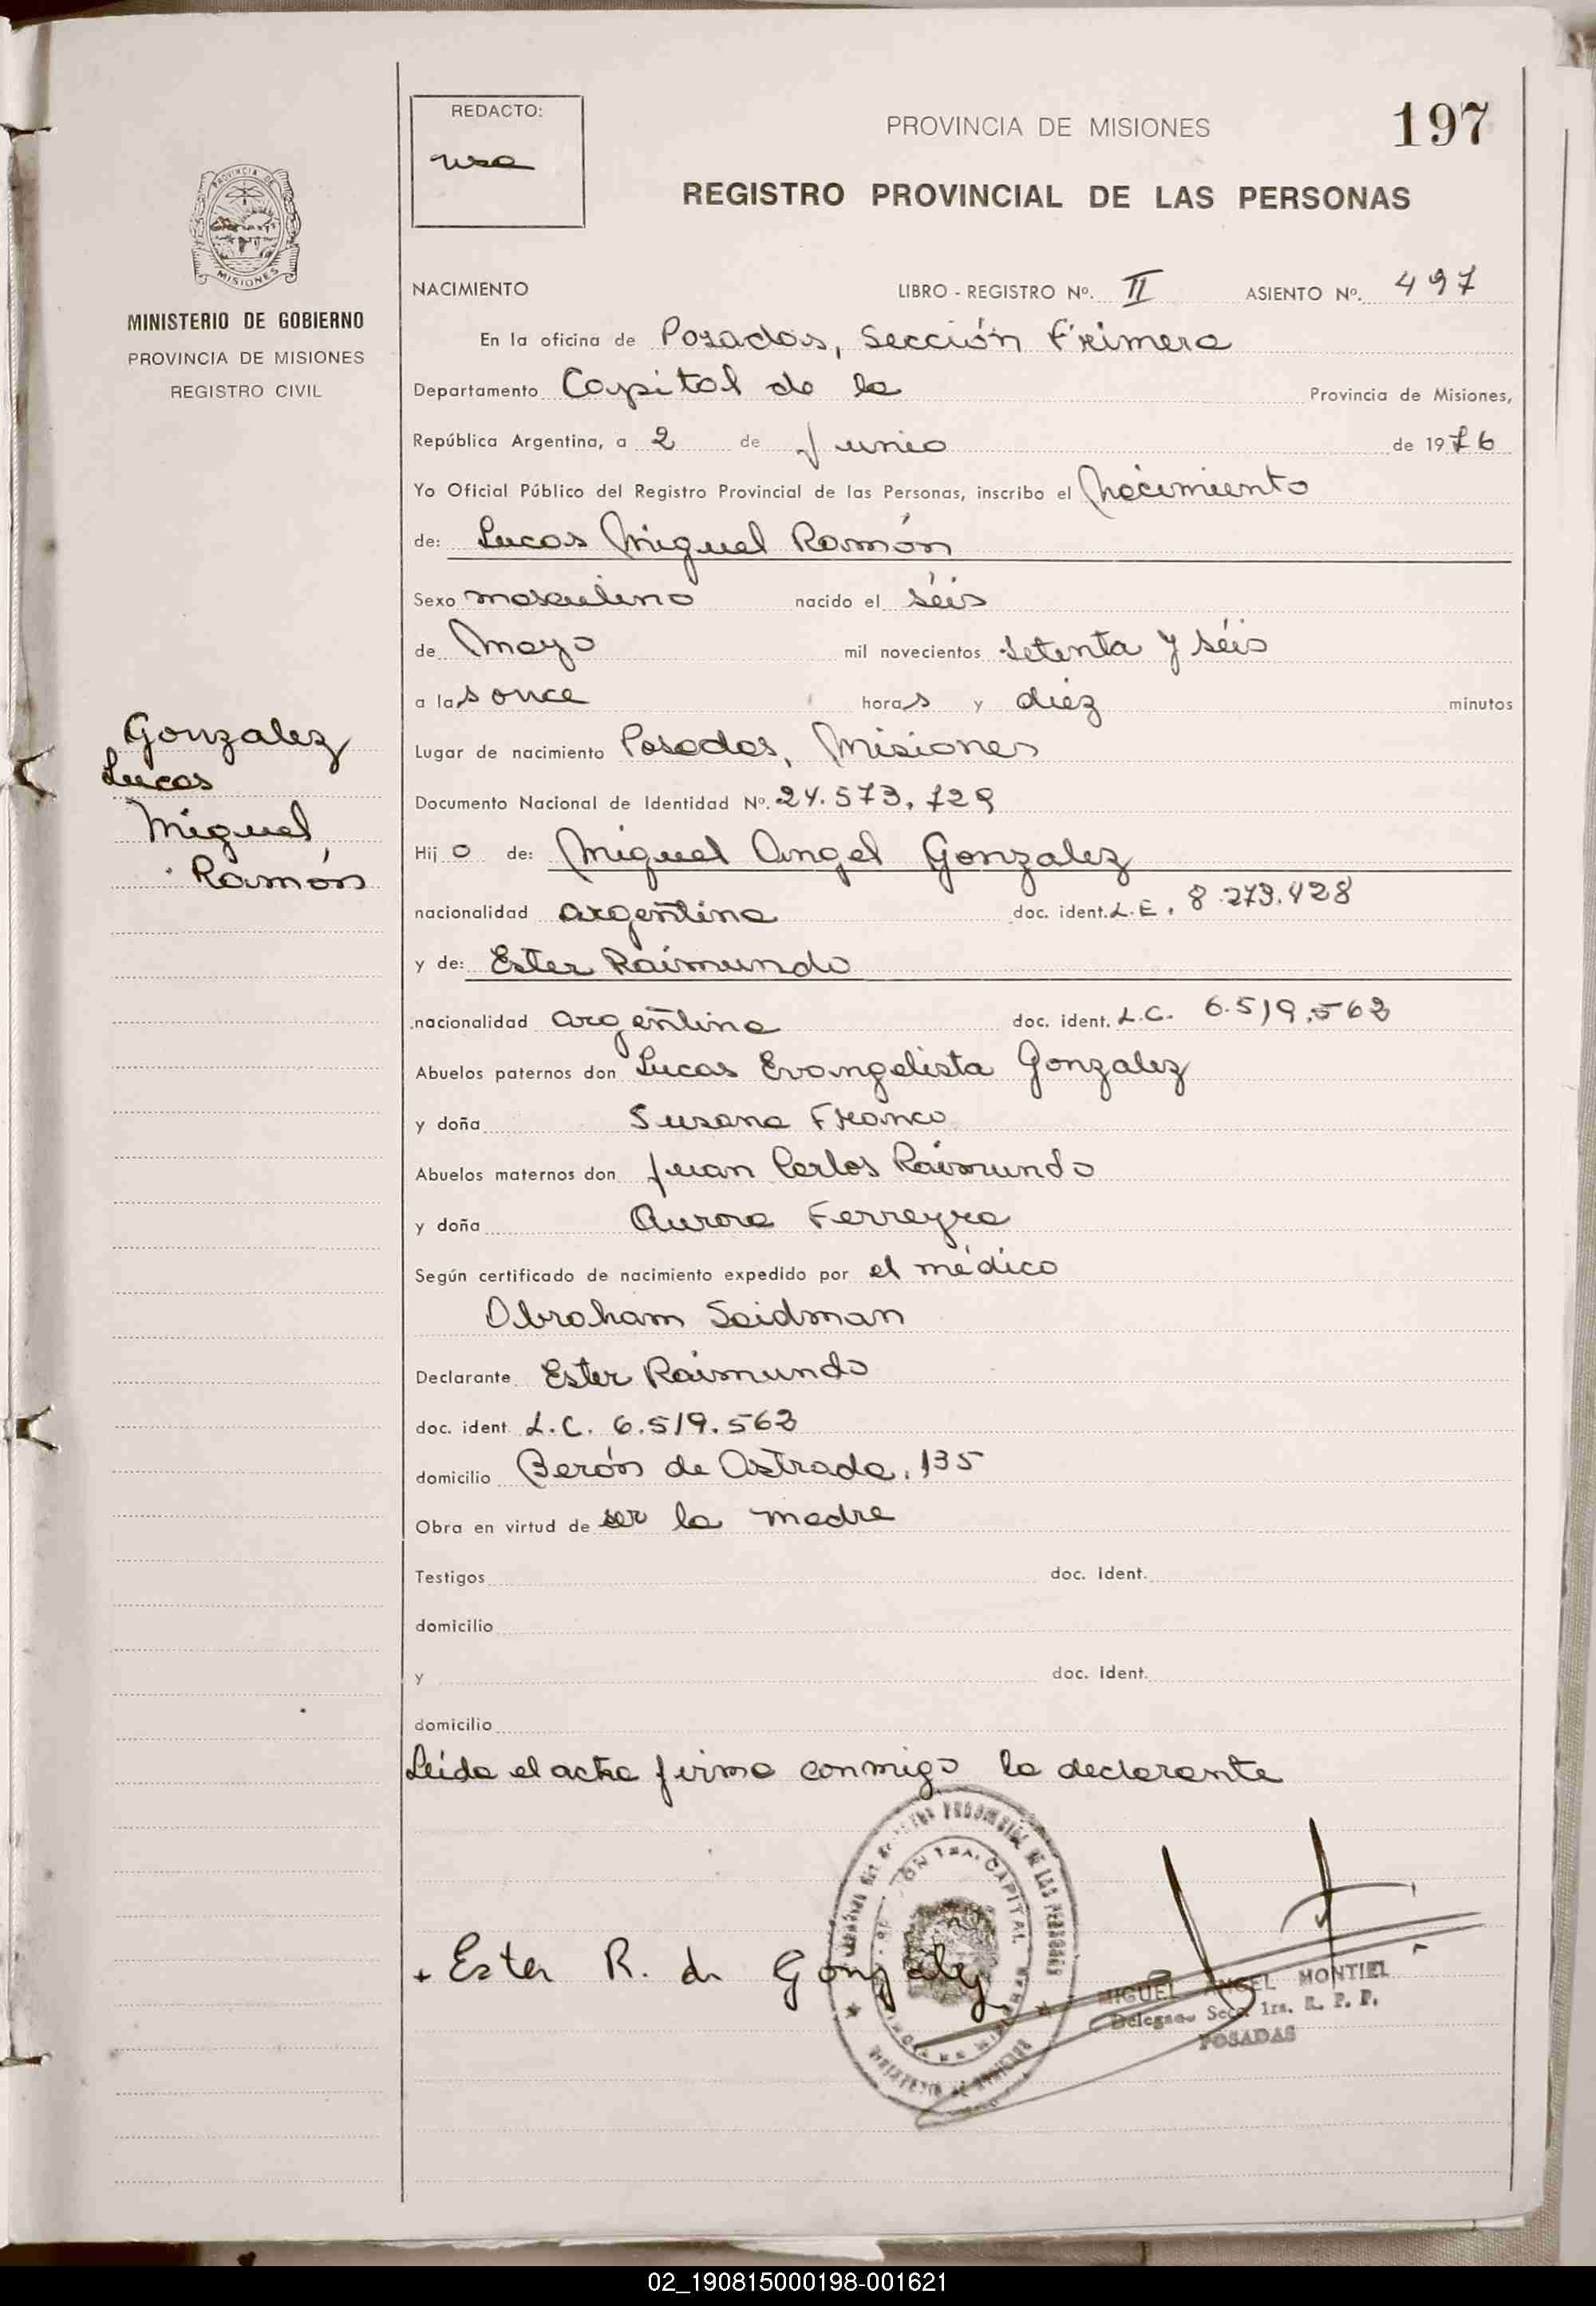 197
REDACTO:
PROVINCIA DE MISIONES
REGISTRO PROVINCIAL DE LAS PERSONAS
PROVINCIA DE
MISIONES
MINISTERIO DE GOBIERNO
PROVINCIA DE MISIONES
REGISTRO CIVIL
Gonzalez
Lucas
Miguel
Ramón
NACIMIENTO LIBRO - REGISTRO Nº. II ASIENTO Nº. 497
En la oficina de Posadas, Sección Primera
Departamento Capital de la Provincia de Misiones,
República Argentina, a 2 de Junio de 1976
Yo Oficial Público del Registro Provincial de las Personas, inscribo el Nacimiento
de: Lucas Miguel Ramón
Sexo masculino nacido el séis
de Mayo mil novecientos setenta y séis
a las once horas y diez minutos
Lugar de nacimiento Posadas, Misiones
Documento Nacional de Identidad Nº. 24.573.729
Hijo de: Miguel Angel Gonzalez
nacionalidad argentina doc. ident. L.E. 8.273.428
y de: Ester Raimundo
nacionalidad argentina doc. ident. L.C. 6.519.563
Abuelos paternos don Lucas Evangelista Gonzalez
y doña Susana Franco
Abuelos maternos don Juan Carlos Raimundo
y doña Aurora Ferreyra
Según certificado de nacimiento expedido por el médico
Abraham Saidman
Declarante Ester Raimundo
doc. ident. L.C. 6.519.563
domicilio Berón de Astrada, 135
Obra en virtud de ser la madre
Testigos doc. ident.
domicilio
y doc. ident.
domicilio
Leída el acta firma conmigo la declarante
Ester R. de Gonzalez
CAPITAL
MIGUEL ANGEL MONTIEL
Secc. 1ra. R. P. P.
POSADAS
02_190815000198-001621